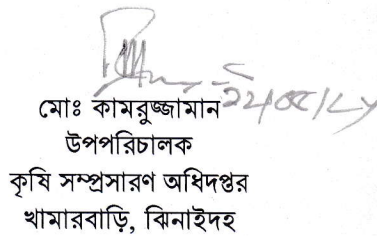 মোঃ কামরুজ্জামান
উপপরিচালক
কৃষি সম্প্রসারণ অধিদপ্তর
খামারবাড়ি, ঝিনাইদহ